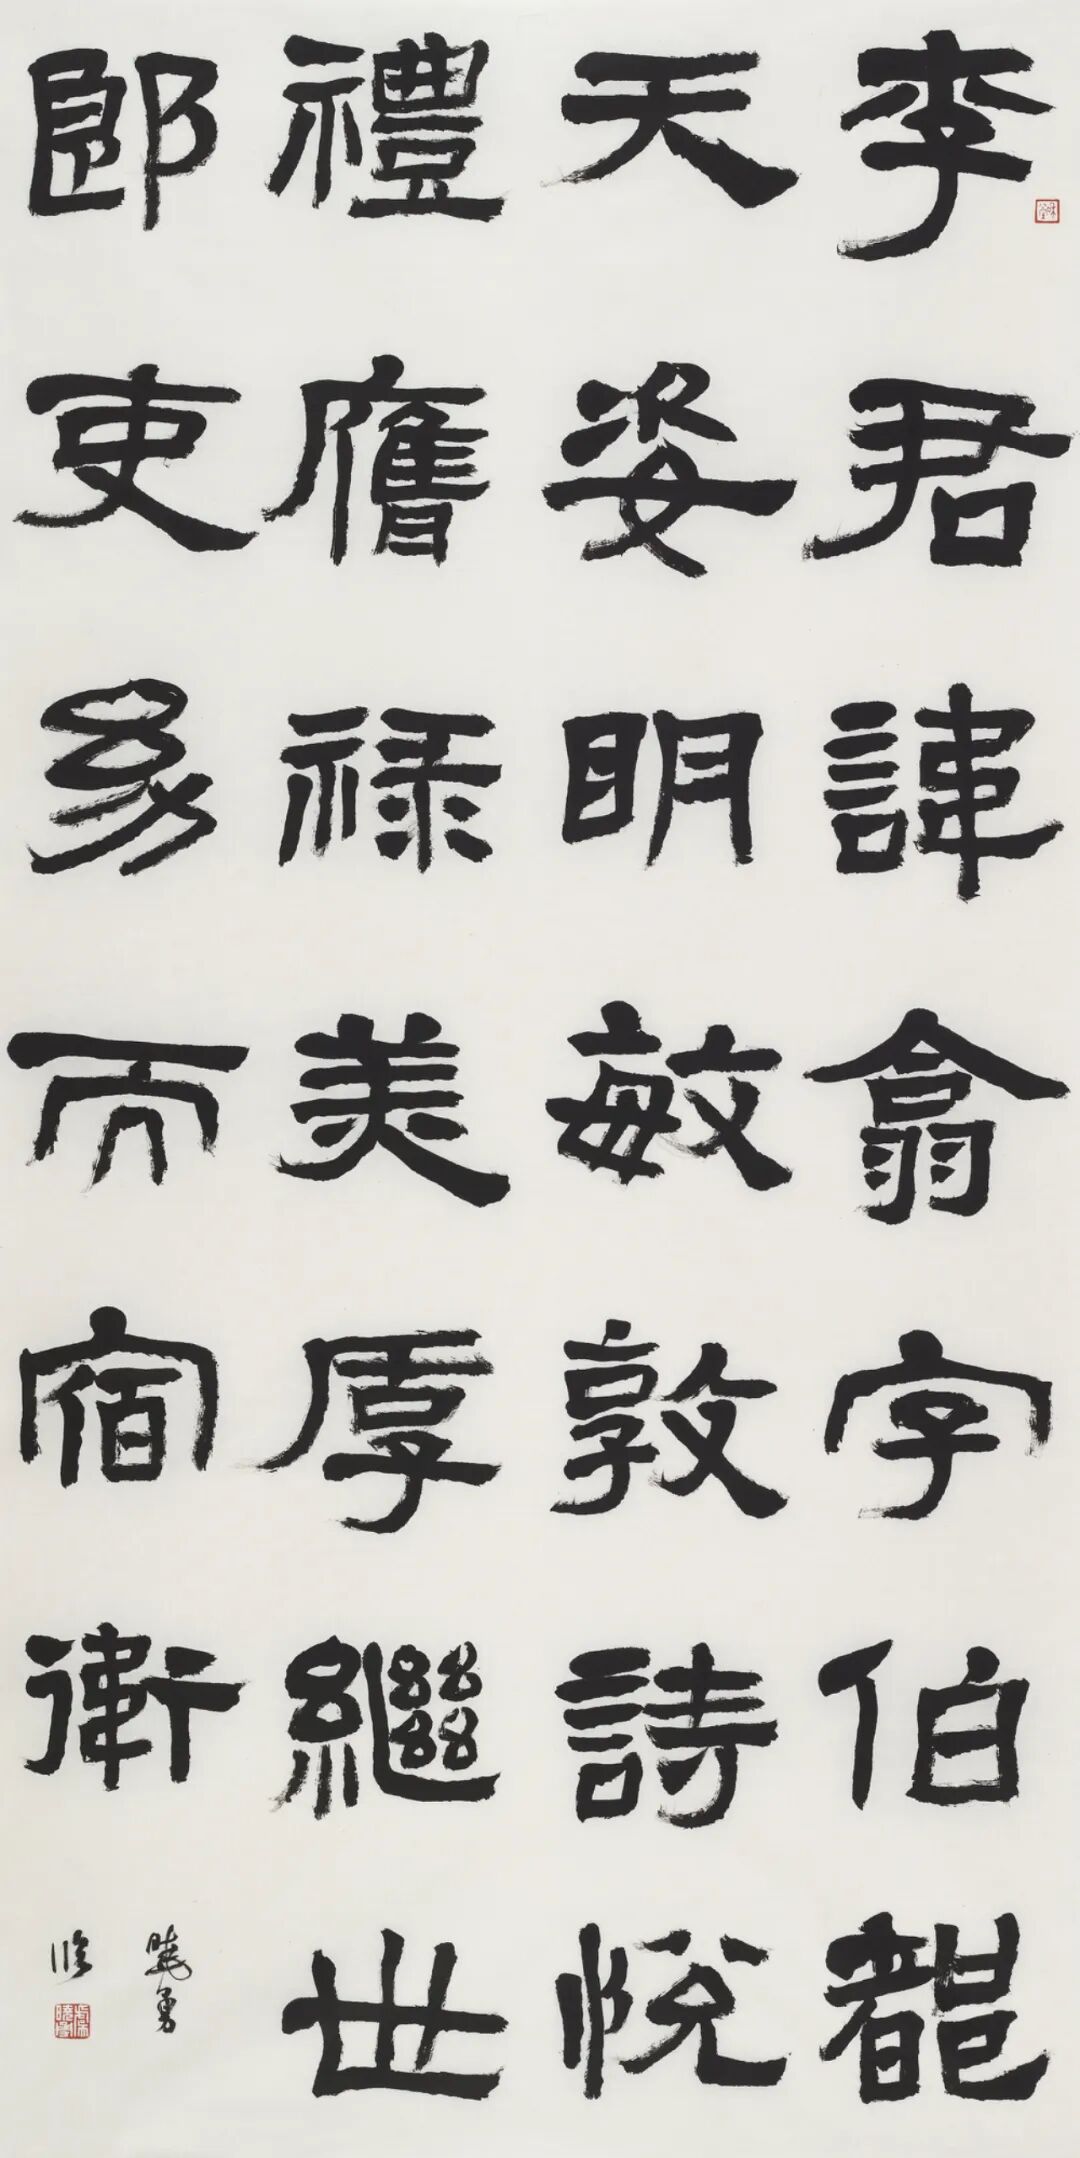 李君諱翕字伯都
天姿明敏敦詩悅
禮膺祿美厚繼世
郎吏幼而宿衛
曉勇
臨